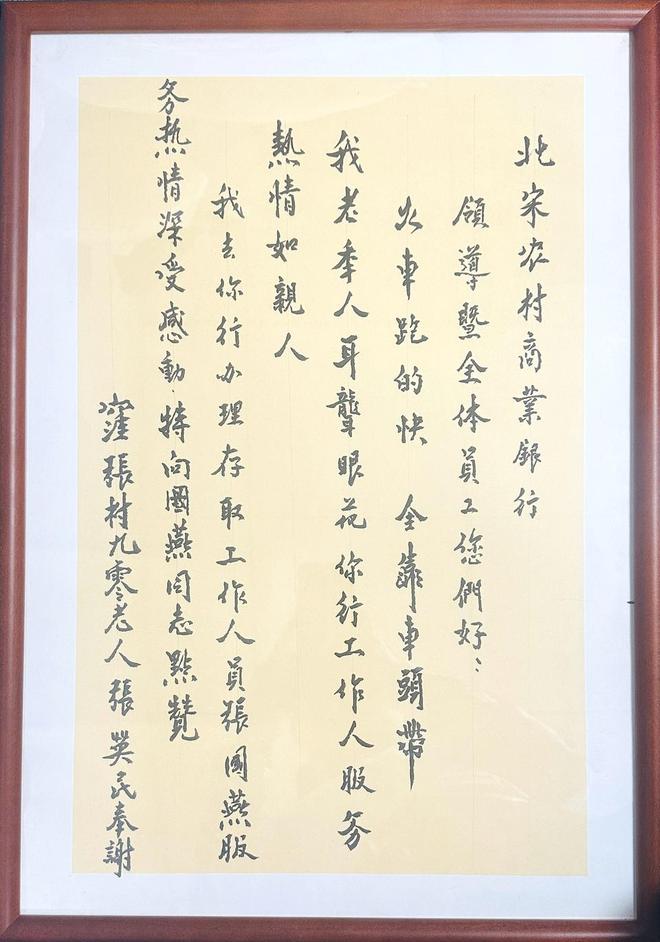 北宋农村商業銀行
領導暨全体員工您們好：
火車跑的快 全靠車頭帶
我老年人耳聾眼花你行工作人服务
熱情如親人
我去你行办理存取工作人員張國燕服
务热情深受感動·特向國燕同志點贊
窪張村九零老人張英民奉謝